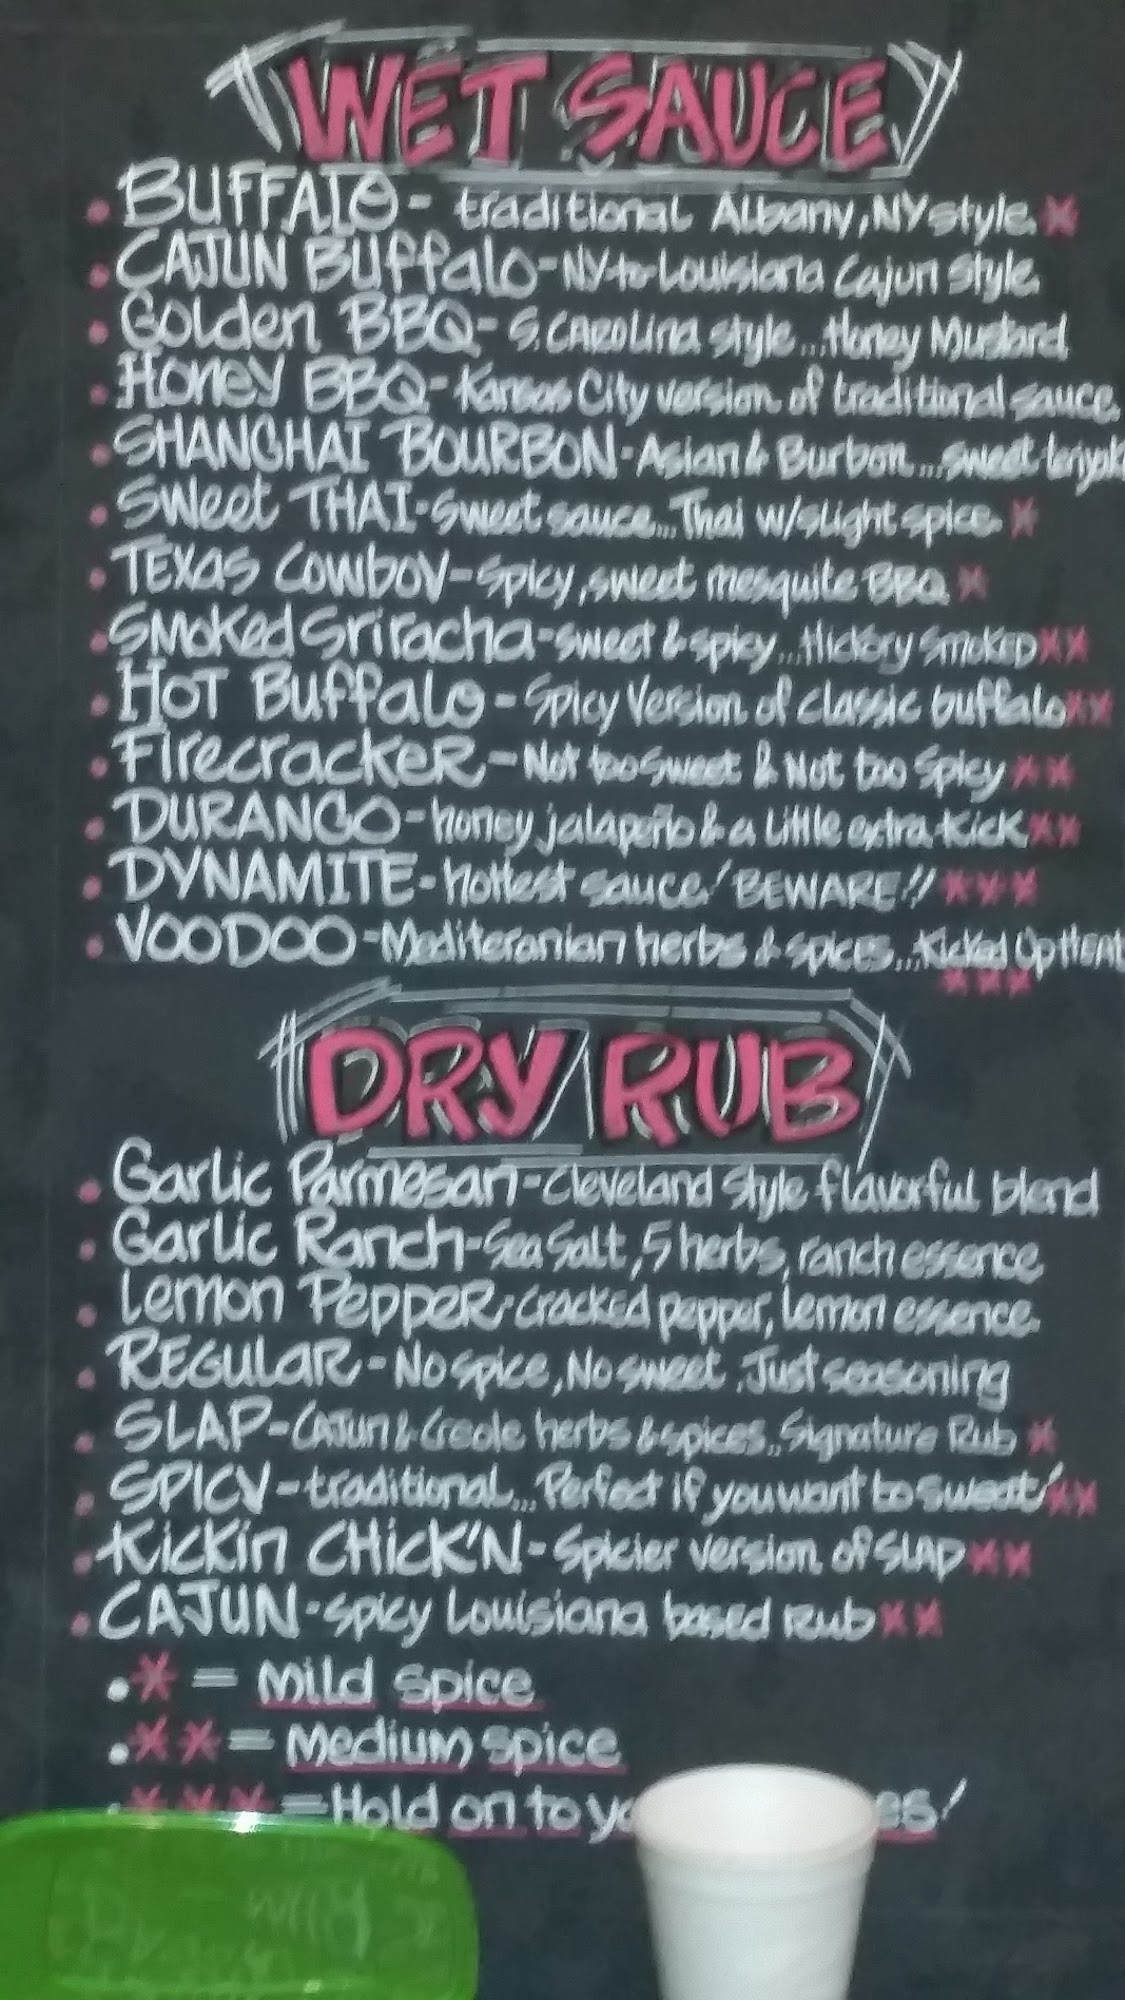 WET SAUCE
• BUFFALO - traditional Albany, NY style. *
• CAJUN Buffalo - NY to Louisiana Cajun Style.
• Golden BBQ - S. CAROLina style...Honey Mustard
• Honey BBQ - Kansas City version of traditional sauce.
• SHANGHAI BOURBON - Asian & Burbon...sweet teriyak
• Sweet THAI - Sweet sauce...Thai w/slight spice. *
• TEXAS COWBOY - Spicy, sweet mesquite BBQ. *
• SMOKED Sriracha - Sweet & spicy...Hickory SMOKED **
• HOT Buffalo - Spicy Version of classic buffalo **
• FirecrackeR - Not too Sweet & Not too Spicy **
• DURANGO - honey, jalapeño & a little extra Kick **
• DYNAMITE - hottest sauce! BEWARE!! ***
• VOODOO - Mediteranian herbs & spices...Kicked Up HEAT
***
DRY RUB
• Garlic Parmesan - Cleveland Style flavorful blend
• Garlic Ranch - Sea Salt, 5 herbs, ranch essence
• Lemon PeppeR - cracked pepper, Lemon essence
• REGULAR - No spice, No sweet. Just seasoning
• SLAP - CAJUN & Creole herbs & spices.. Signature Rub *
• SPICY - traditional... Perfect if you want to Sweat! **
• Kickin CHICK'N - Spicier version of SLAP **
• CAJUN - spicy Louisiana based Rub **
• * = Mild spice
• ** = Medium spice
• *** = Hold on to